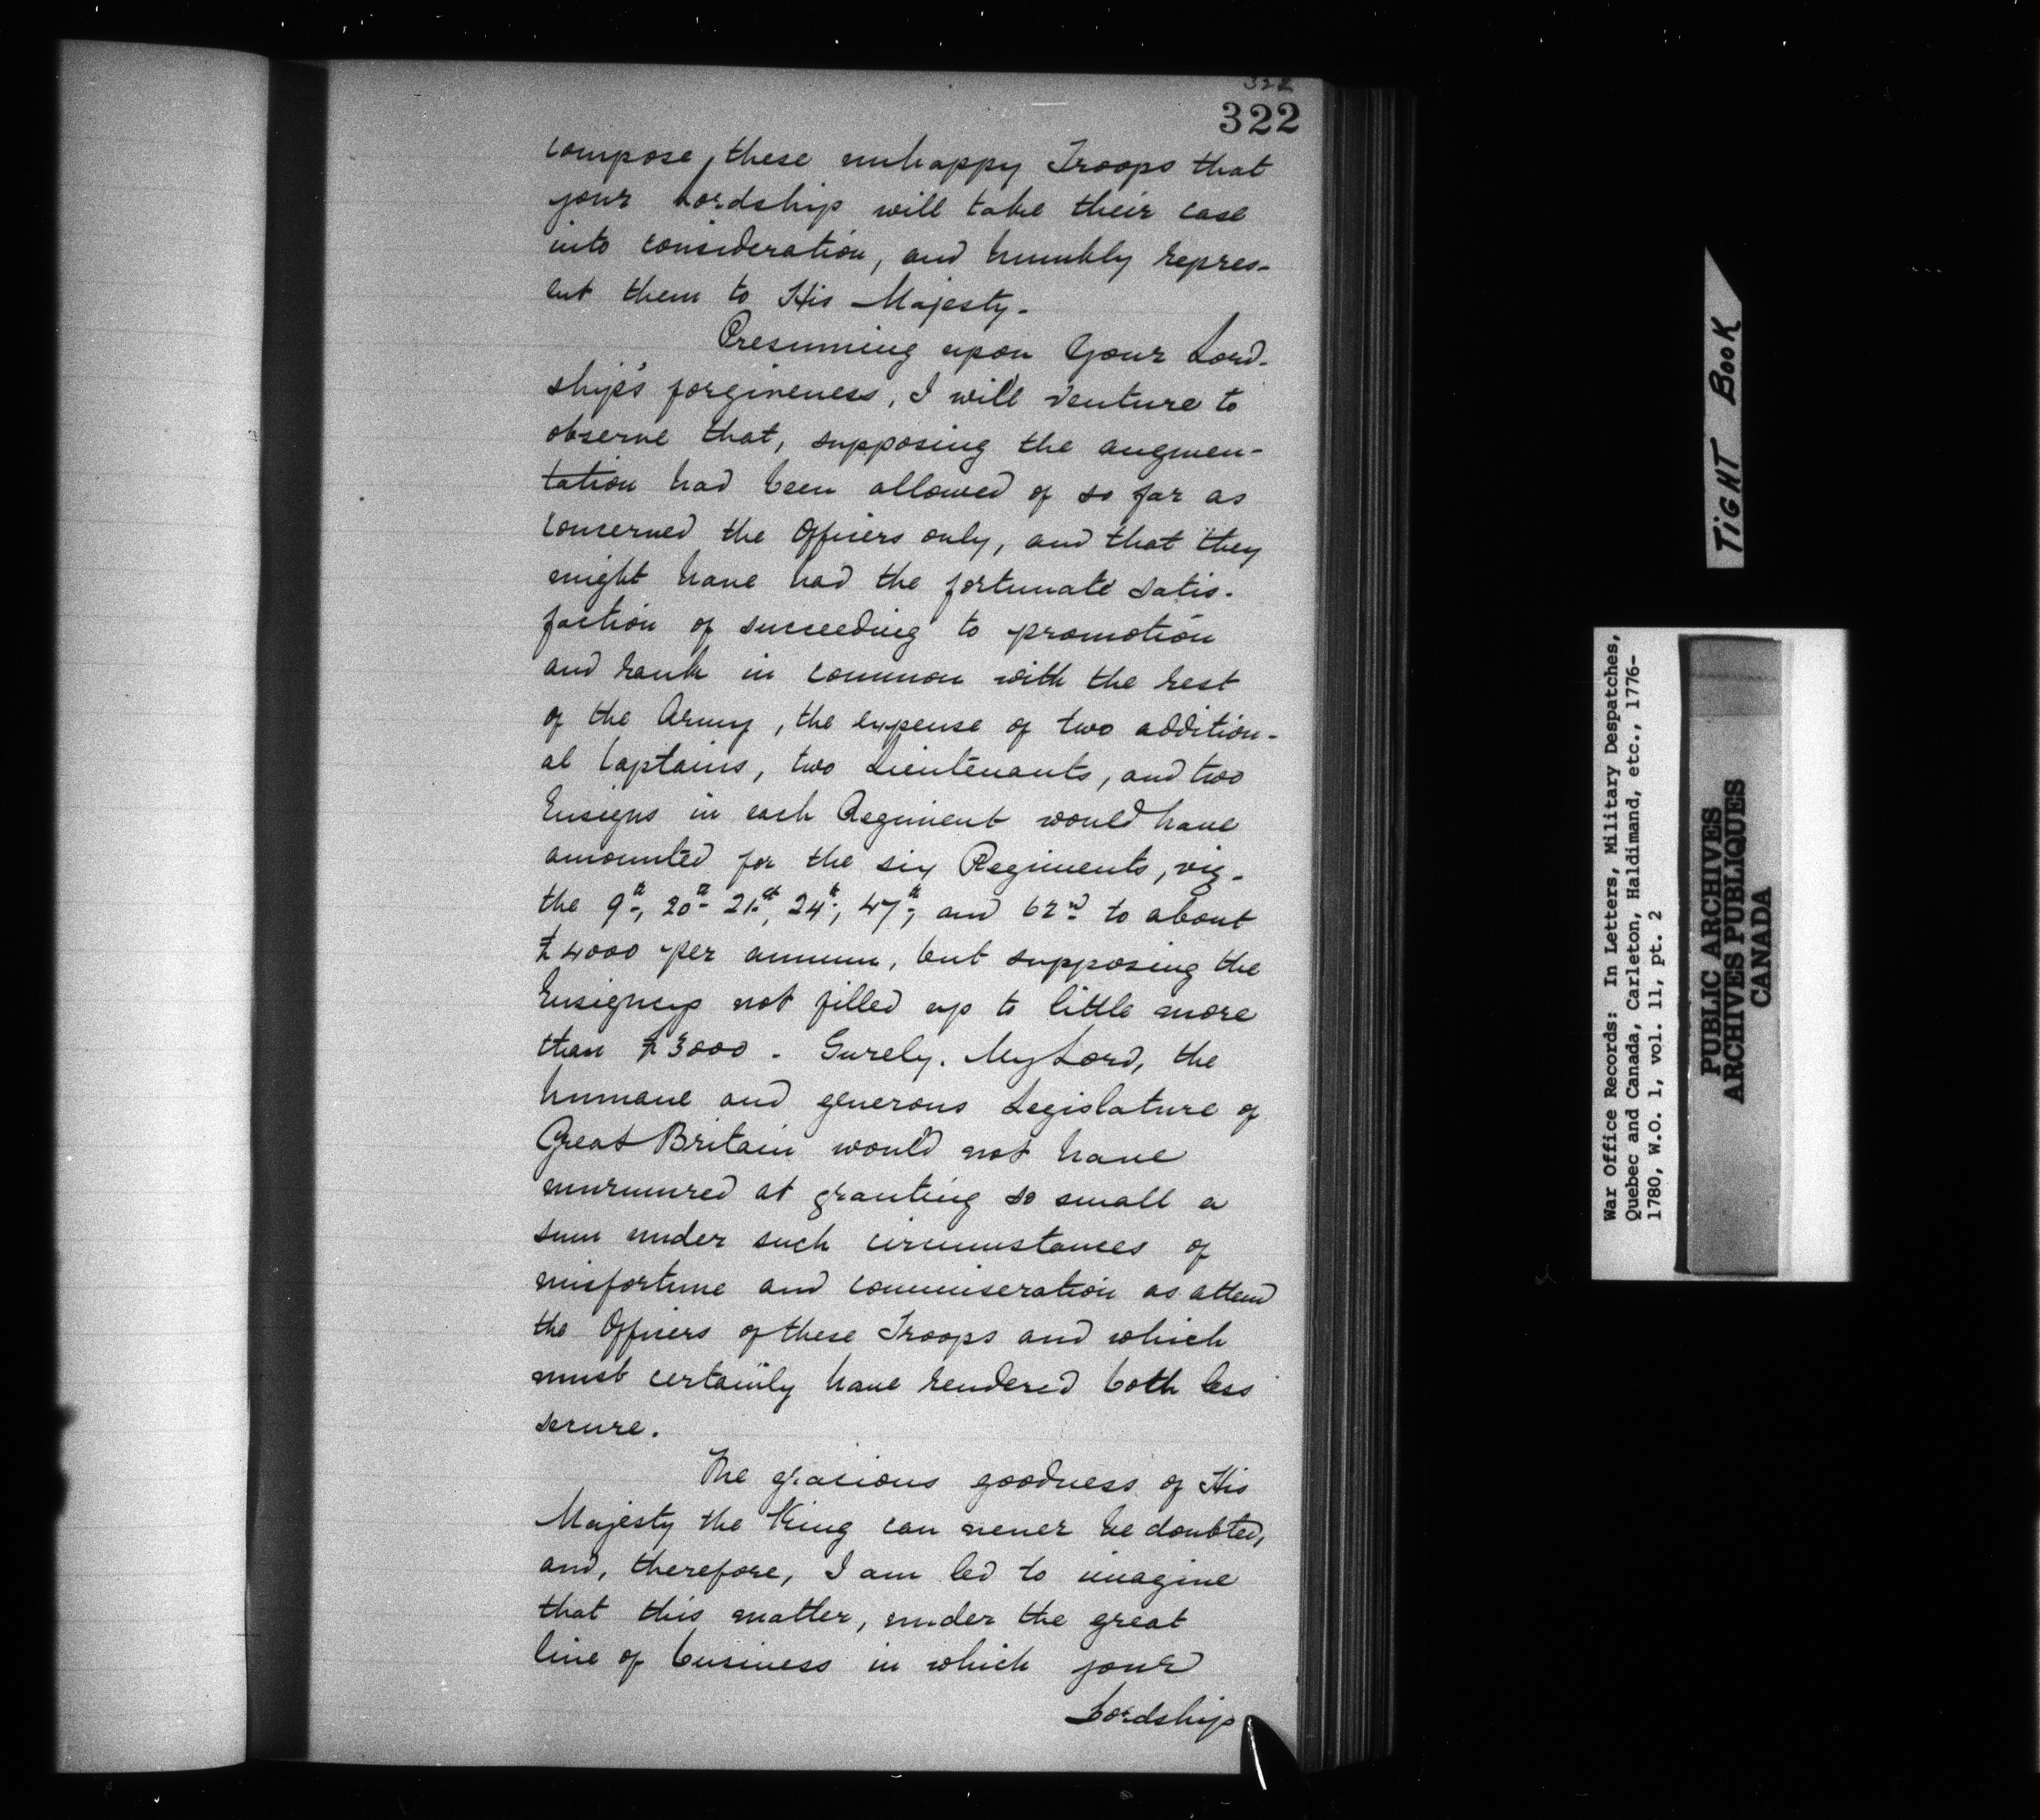 322
322
compose, these unhappy Troops that
your Lordship will take their case
into consideration, and humbly repres-
ent them to His Majesty.
Presuming upon Your Lord-
ship's forgiveness, I will venture to
observe that, supposing the augmen-
tation had been allowed of so far as
concerned the Officers only, and that they
might have had the fortunate satis-
faction of succeeding to promotion
and rank in common with the rest
of the Army, the expense of two addition-
al Captains, two Lieutenants, and two
Ensigns in each Regiment would have
amounted for the six Regiments, viz-
the 9th, 20th 21st, 24th, 47th, and 62nd to about
£4000 per annum, but supposing the
Ensigncys not filled up to little more
than £3000 - Surely. My Lord, the
humane and generous Legislature of
Great Britain would not have
murmured at granting so small a
sum under such circumstances of
misfortune and commiseration as attend
the Officers of these Troops and which
must certainly have rendered both less
secure.
The gracious goodness of His
Majesty the King can never be doubted,
and, therefore, I am led to imagine
that this matter, under the great
line of business in which your
Lordship
TIGHT BOOK
War Office Records: In Letters, Military Despatches,
Quebec and Canada, Carleton, Haldimand, etc., 1776-
1780, W.O. 1, vol. 11, pt. 2
PUBLIC ARCHIVES
ARCHIVES PUBLIQUES
CANADA